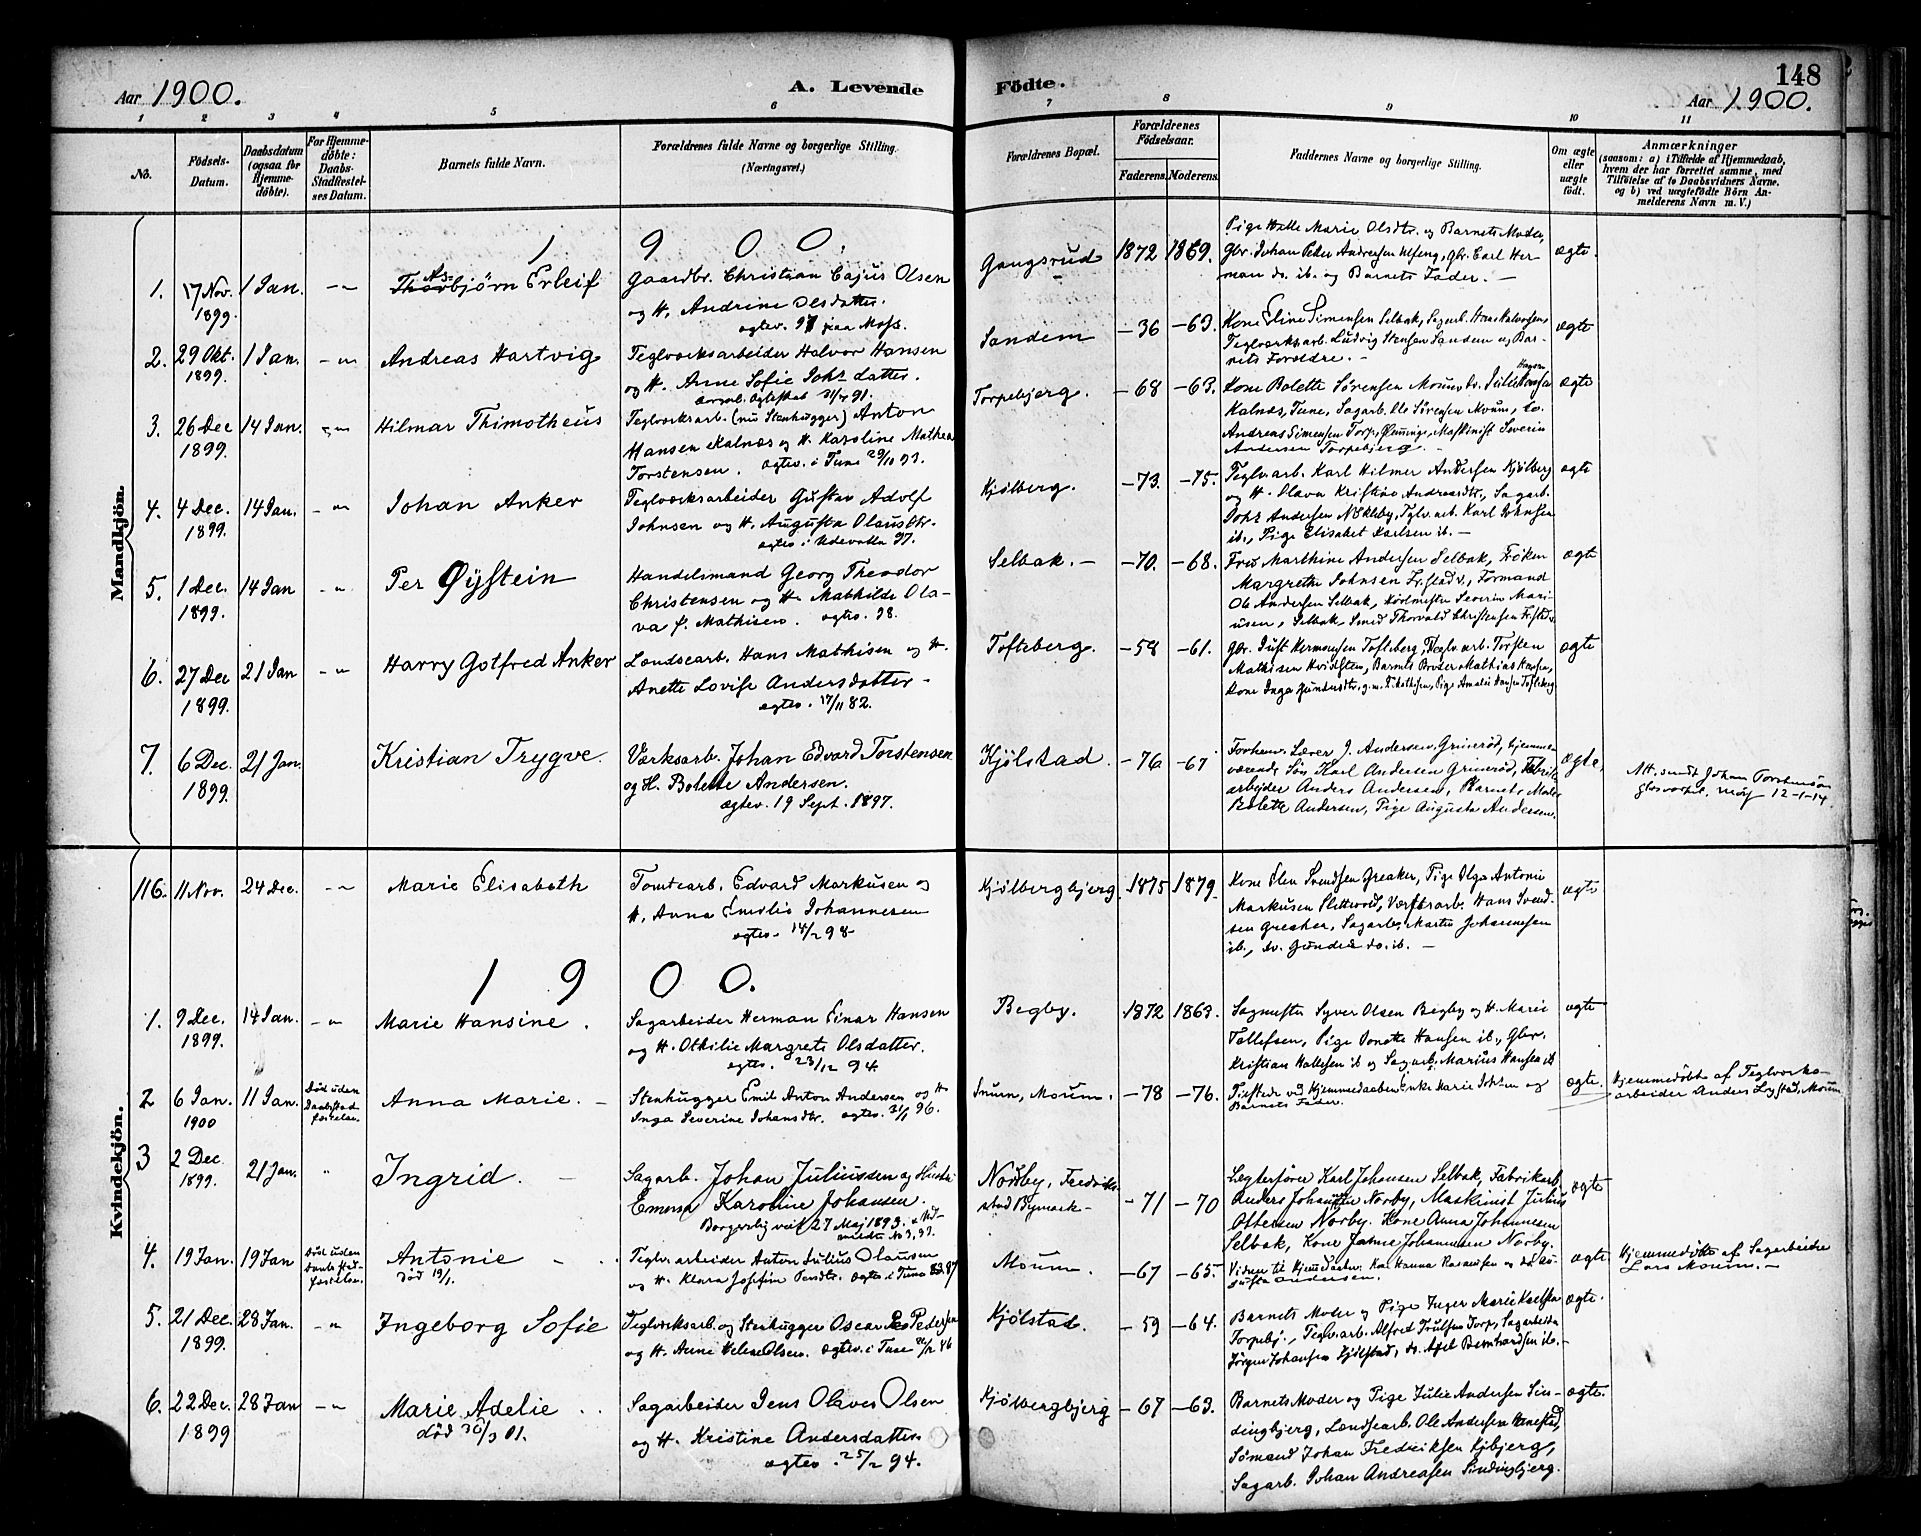 148
Aar 1900. A. Levende Födte. Aar 1900.
1 2 3 4 5 6 7 8 9 10 11
No. Födsels-Datum. Daabsdatum (ogsaa for Hjemme-døbte). For Hjemme-døbte: Daabs-Stadfestel-ses Datum. Barnets fulde Navn. Forældrenes fulde Navne og borgerlige Stilling. (Næringsvei.) Forældrenes Bopæl. Forældrenes Födselsaar. Faderens. Moderens. Faddernes Navne og borgerlige Stilling. Om ægte eller uægte født. Anmærkninger (saasom: a) i Tilfælde af Hjemmedaab, hvem der har forrettet samme, med Tilföielse af to Daabsvidners Navne, og b) ved uægtefödte Börn An-melderens Navn m. V.)
Mandkjön.
1 9 0 0.
1. 17 Nov. 1899. 1 Jan. Thorbjørn Erleif
As-
Gaardbr. Christian Cajus Olsen
og H. Andrine Olsdatter.
Gangsrud 1872 1869.
Pige Hulte Marie Olsdtr. og Barnets Moder,
man do. ib. og Barnets Fader. —
ægte.
2. 29 Okt. 1899. 1 Jan. Andreas Hartvig
Teglværksarbeider Halvor Hansen
og H. Anne Sofie Johs datter.
Sandem —36 —63.
Kone Eline Simensen Selbak, Sagarb. Hans Halvorsen,
Teglværksarb. Ludvig Stensen Sandem og Bar-
nets Forældre. —
ægte
3. 26 Dec 1899. 14 Jan. Hilmar Thimotheus
Teglværksarb. (nu Stenhugger) Anton
Hansen Kalnæs og H. Karoline Mathea
Torstensen. ægtev. i Tune 29/10 93.
Torpebjerg. —68 —63.
Kone Bolette Sørensen Moum, do. Julie Hansen
Kalnæs, Tune, Sagarb. Ole Sørensen Moum, do.
Andreas Simensen Torp, Glemminge, Maskinist Severin
Andersen Torpebjerg.
ægte
4. 4 Dec. 1899. 14 Jan. Johan Anker
Teglværksarbeider Gustav Adolf
Johnsen og H. Augusta Olausdtr.
ægtev. i Udevalla 97.
Kjölberg. —73. —75.
Teglv.arb. Karl Hilmer Andersen Kjölberg
og H. Olava Kristine Andreasdtr., Sagarb.
ib., Pige Elisabet Karlsen ib. —
ægte
5. 1 Dec. 1899. 14 Jan Per Øystein
Handelsmand Georg Theodor
Christensen og H. Mathilde Ola-
va f. Mathisen. ægtev. 98.
Selbak. — —70. —68.
Fru Marthine Andersen Selbak, Frøken
Margrethe Johnsen Fr.stad, Formand
Ole Andersen Selbak, Kørlmester Severin Mari-
usen, Selbak, Smed Thorvald Christensen Fr.stad
ægte
6. 27 Dec 1899. 21 Jan Harry Gotfred Anker
Landsearb. Hans Mathisen og H.
Anette Lovise Andersdatter —
ægtev. 17/11 82.
Tofteberg. —58 —61.
Gbr. Just Hermansen Tofteberg, Teglv. arb. Torsten
Mathisen Kvidsten, Barnets Broder Mathias Hansen,
Kone Inga Gundersdtr, g.m. T. Mathisen, Pige Amalie Hansen Tofteberg
ægte
7. 6 Dec. 1899. 21 Jan. Kristian Trygve.
Værksarb. Johan Edvard Torstensen
og H. Bolette Andersen.
ægtev. 19 Sept. 1897.
Kjölstad. —76 —67
Forhenv. Lærer J. Andersen Grimerød, hjemme-
værende Søn Karl Andersen Grimerød, Fabrik-
arbeider Anders Andersen, Barnets Moder
Bolette Andersen, Pige Augusta Andersen.
ægte.
Att. sendt Johan Torstensen
12-1-14
Kvindekjön.
116. 11 Nov. 24 Dec. Marie Elisabeth
Tomtearb. Edvard Markusen og
H. Anna Emilie Johannesen
ægtev. 14/2 98
Kjölbergbjerg. 1875 1879.
Kone Elen Svendsen Greaker, Pige Olga Antonie
Markusen Slettevold, Værftsarb. Hans Svend-
sen Greaker, Sagarb. Martin Johannesen
ib., do. Gunder do. ib. —
ægte
1 9 0 0.
1. 9 Dec. 1899. 14 Jan. Marie Hansine.
Sagarbeider Herman Einar Hansen
og H. Othilie Margrete Olsdatter.
ægtev. 23/12 94
Begby. 1872 1863.
Sagmester Syver Olsen Begby og H. Marie
Tollefsen, Pige Donette Hansen ib., Gbr.
Kristian Kallesen ib og Sagarb. Marius Hansen ib
ægte
2 6 Jan. 1900 11 Jan. Død uden Daabsstadfæstelse. Anna Marie. —
Stenhugger Emil Anton Andersen og H
Inga Severine Johansdtr. ægtev. 96.
Snurn, Moum. —78 —76.
Tilstede ved Hjemmedaaben Enke Marie Johnsen og
Barnets Fader.
ægte.
Hjemmedøbt af Teglværks-
arbeider Anders Lystad, Moum
3 2 Dec. 1899. 21 Jan. Ingrid. —
Sagarb. Johan Juliussen og Hustru
Emma Karoline Johansen.
Borgerlig viet 27 Maj 1893.
Norsby, Fredrik-
stad Bymark — —71 —70
Lægterfører Karl Johansen Selbak, Fabrikarb.
Anders Johansen Norby, Maskinist Julius
Ottersen Norby. Kone Anna Johannesen
Selbak, Kone Janne Johannesen Norby.
ægte
4. 19 Jan. 19 Jan Død uden Daabsstadfæstelse. Antonie
død 19/1.
Teglv. arbeider Anton Julius Olausen
og H. Klara Josefine ægtev. i Tune 87
Moum. —67 —65.
ægte
Hjemmedøbt af Sagarbeider
Lars Moum. —
5. 21 Dec. 1899. 28 Jan. Ingeborg Sofie
Teglværksarb. og Stenhugger Oscar Pedersen
og H. Anne Helene Olsen. ægtev. i Tune 26/12 86
Kjölstad. —59 —64.
Barnets Moder og Pige Inger Marie Karlsen
Torpebj., Teglv. arb. Alfred Trulsen Torp, Sagarbeider
Jörgen Johansen Kjölstad, do. Axel Bernhardsen ib. —
ægte.
6. 22 Dec. 1899 28 Jan Marie Adelie
død 30/3 01.
Sagarbeider Jens Olaves Olsen
og H. Kristine Andersdatter.
ægtev. 25/2 94.
Kjölbergbjerg —67 —63.
Barnets Moder og Pige Julie Andersen Sin-
dingbjerg, Landsearb. Ole Andersen
Sömand Johan Fredriksen Kjbjerg,
Sagarb. Johan Andreasen Sindingbjerg.
ægte.